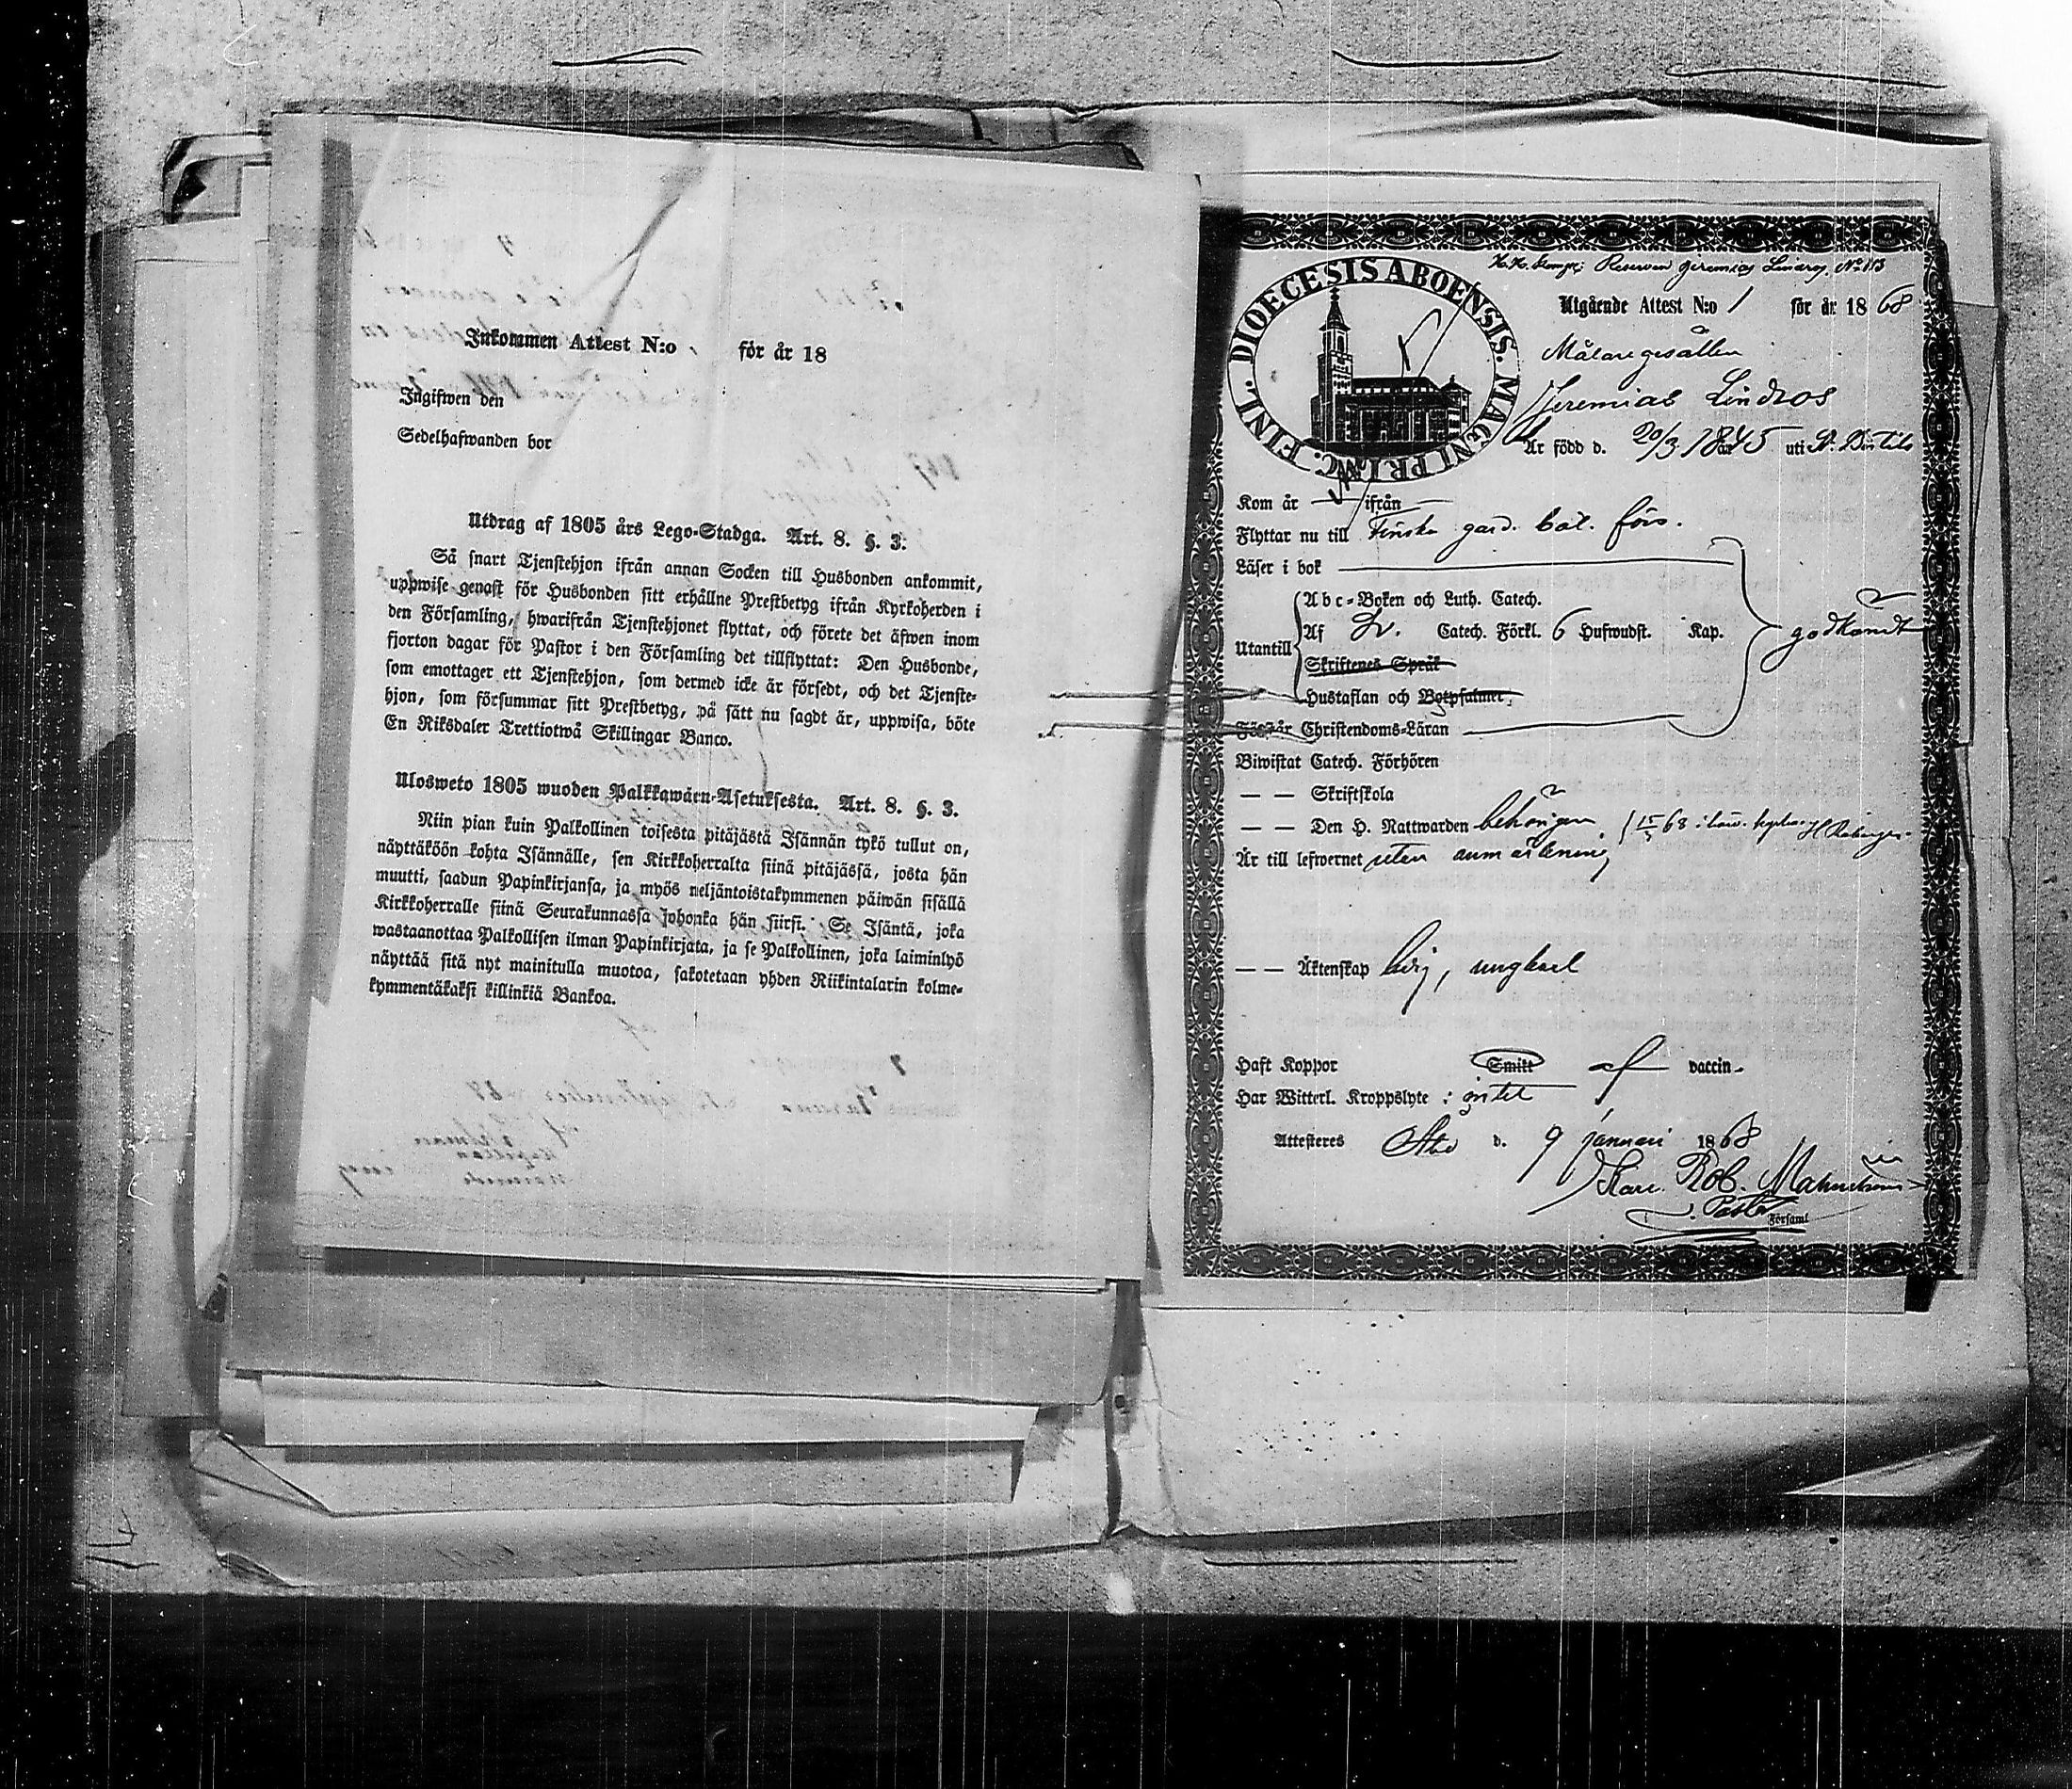 Inkommen Attest N:o för år 18
Ingifwen den
Sedelhafwanden bor
Utdrag af 1805 års Lego-Stadga. Art. 8. §. 3.
Så snart Tjenstehjon ifrån annan Socken till Husbonden ankommit,
uppwise genast för Husbonden sitt erhållne Prestbetyg ifrån Kyrkoherden i
den Församling, hwarifrån Tjenstehjonet flyttat, och förete det äfwen inom
fjorton dagar för Pastor i den Församling det tillflyttat: Den Husbonde,
som emottager ett Tjenstehjon, som dermed icke är försedt, och det Tjenste-
hjon, som försummar sitt Prestbetyg, på sätt nu sagdt är, uppwisa, böte
En Riksdaler Trettiotwå Skillingar Banco.
Ulosweto 1805 wuoden Palkkawäen-Asetuksesta. Art. 8. §. 3.
Niin pian kuin Palkollinen toisesta pitäjästä Isännän tykö tullut on,
näyttäköön kohta Isännälle, sen Kirkkoherralta siinä pitäjässä, josta hän
muutti, saadun Papinkirjansa, ja myös neljäntoistakymmenen päiwän sisällä
Kirkkoherralle siinä Seurakunnassa johonka hän siirsi. Se Isäntä, joka
wastaanottaa Palkollisen ilman Papinkirjata, ja se Palkollinen, joka laiminlyö
näyttää sitä nyt mainitulla muotoa, sakotetaan yhden Riikintalarin kolme-
kymmentäkaksi killinkiä Bankoa.
Reserven Jeremias Lindros, No 113
DIOECESIS ABOENSIS. MAGNI PRINC. FINL.
Utgående Attest N:o 1 för år 1868
Målaregesällen
Jeremias Lindros
Är född d. 20/3 1845 uti
Kom år — ifrån —
Flyttar nu till Finska gard. bat. förs.
Läser i bok
Abc-Boken och Luth. Catech.
Utantill Af Catech. Förkl. 6 Hufwudst. Kap. godkändt
Skriftenes Språk
Hustaflan och Botpsalmer,
Förstår Christendoms-Läran
Biwistat Catech. Förhören
— — Skriftskola
— — Den H. Nattwarden behörigen
Är till lefwernet utan anmärkning
— — Äktenskap ledig, ungkarl
Haft Koppor Smitt af vaccin
Har Witterl. Kroppslyte: intet
Attesteres Åbo d. 9 januari 1868
Rob.
Pastor
Församl